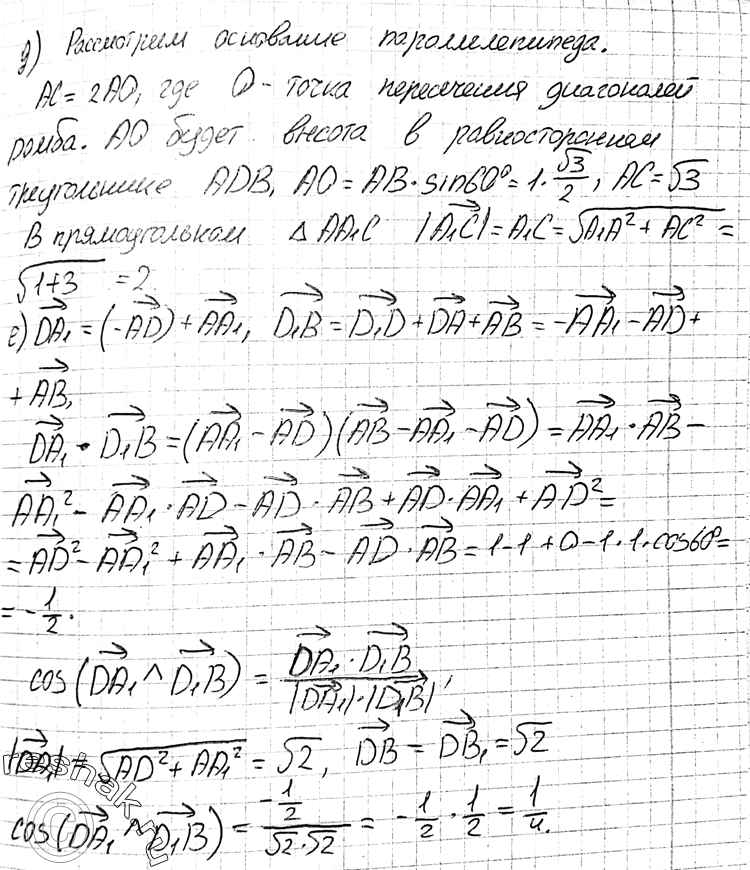 д) Рассмотрим основание параллелепипеда.
AC = 2AO, где O - точка пересечения диагоналей
ромба. AO будет высота в равностороннем
треугольнике ADB, AO = AB · sin60° = 1 · √3/2, AC = √3
В прямоугольном △ AA₁C |A₁C→| = A₁C = √(A₁A² + AC²) =
√(1+3) = 2.
е) DA₁→ = (-AD→) + AA₁→, D₁B→ = D₁D→ + DA→ + AB→ = -AA₁→ - AD→ +
+ AB→,
DA₁→ · D₁B→ = (AA₁→ - AD→)(AB→ - AA₁→ - AD→) = AA₁→ · AB→ -
AA₁→² - AA₁→ · AD→ - AD→ · AB→ + AD→ · AA₁→ + AD→² =
= AD→² - AA₁→² + AA₁→ · AB→ - AD→ · AB→ = 1 - 1 + 0 - 1 · 1 · cos60° =
= - 1/2.
cos(DA₁→ ^ D₁B→) = (DA₁→ · D₁B→)/(|DA₁→| · |D₁B→|),
|DA₁→| = √(AD² + AA₁²) = √2, DB→ = DB₁→ = √2
cos(DA₁→ ^ D₁B→) = (-1/2)/(√2 · √2) = - 1/2 · 1/2 = 1/4.
reshak.ru